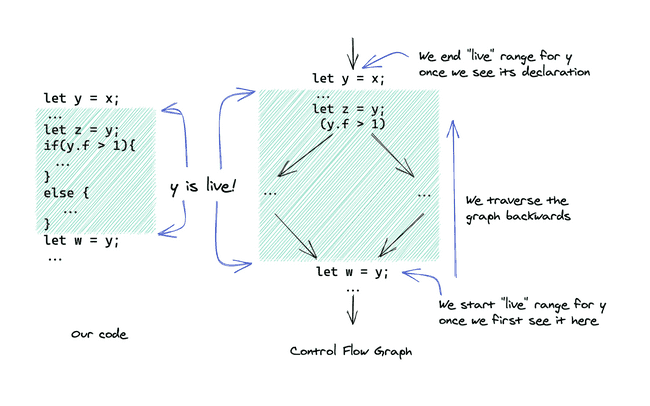 let y = x;
...
let z = y;
if(y.f > 1){
...
}
else {
...
}
let w = y;
...
Our code
y is live!
let y = x;
...
let z = y;
(y.f > 1)
...
...
let w = y;
...
Control Flow Graph
We end "live" range for y
once we see its declaration
We traverse the
graph backwards
We start "live" range for y
once we first see it here